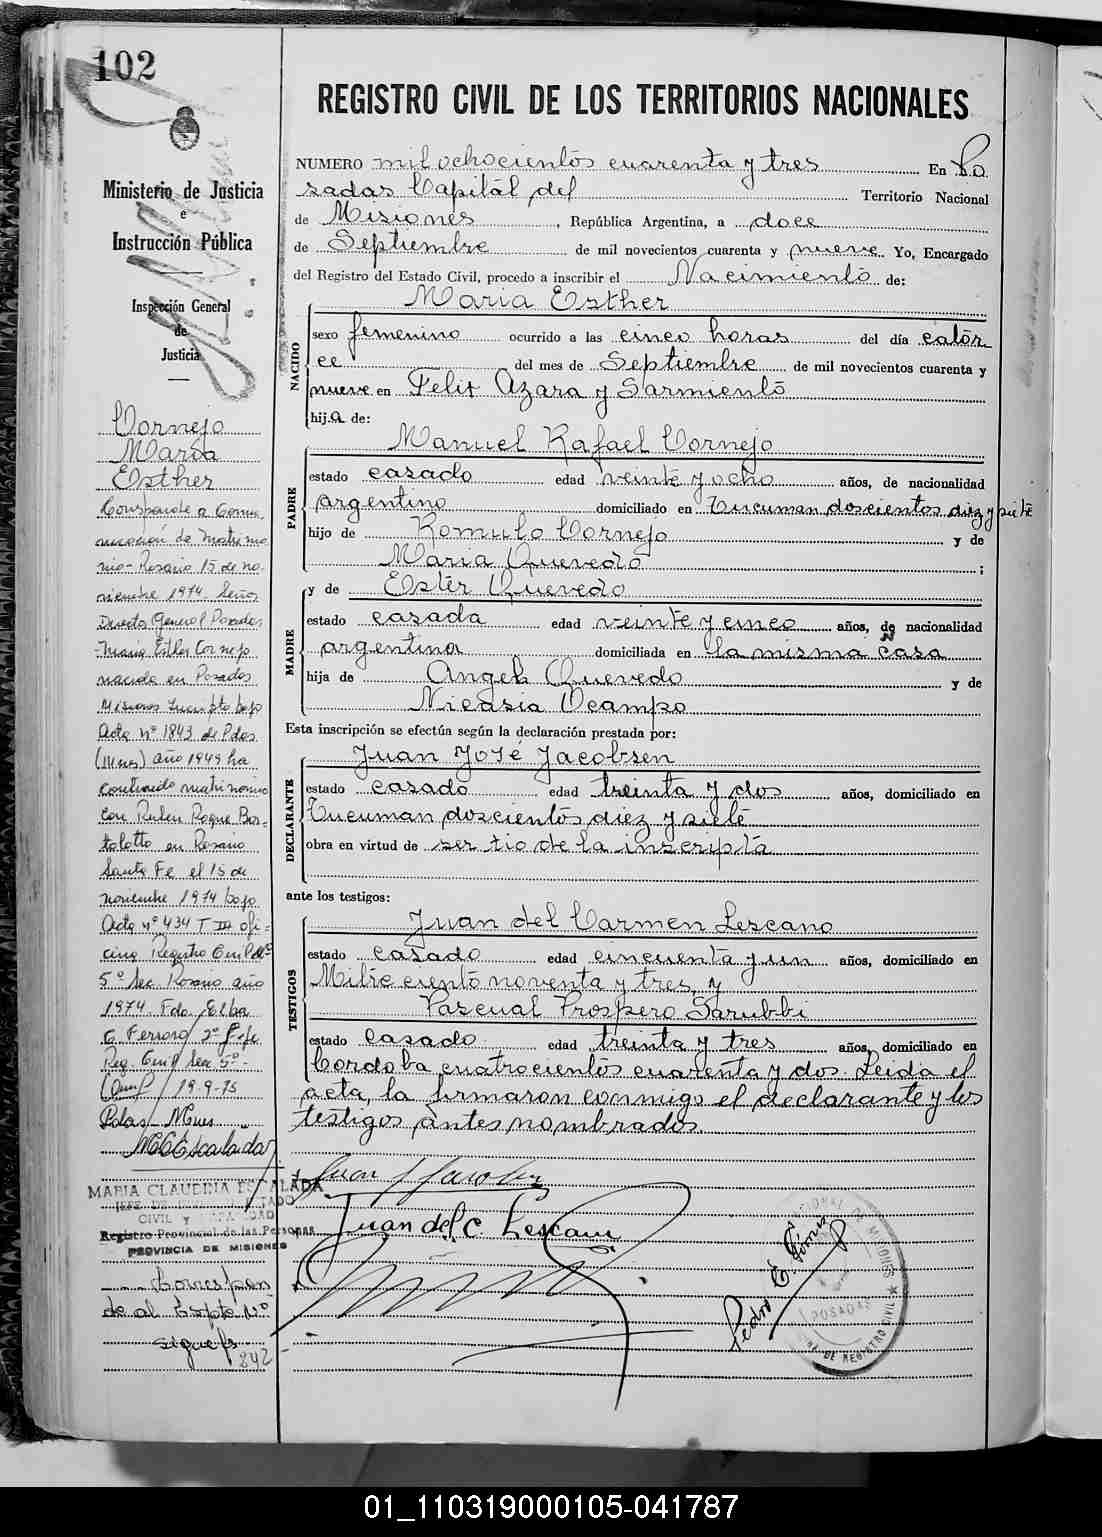 102
Ministerio de Justicia
e
Instrucción Pública
Inspección General
de
Justicia
Cornejo
Maria
Esther
Corresponde a Comu
nicación de Matrimo
nio - Rosario 15 de no
viembre 1974 Señor
Director General Posadas
- Maria Esther Cornejo
nacida en Posados
Misiones Inscripta bajo
Acta nº 1843 de Pdas
(Mnes) año 1949 ha
contraido matrimonio
con Ruben Roque Bor-
tolotto en Rosario
Santa Fe el 15 de
noviembre 1974 bajo
Acta nº 434 T III ofi-
cina Registro Civil de
5º Sec. Rosario año
1974. Fdo. Elba
G. Ferraro 2º Jefe
Reg. Civil Sec 5º -
19-9-75
Pdas - Mnes
MCEscalada
MARIA CLAUDINA ESCALADA
CIVIL Y
Registro Provincial de las Personas
PROVINCIA DE MISIONES
Correspon
de al Expte Nº
sigue fs
842
REGISTRO CIVIL DE LOS TERRITORIOS NACIONALES
NUMERO mil ochocientos cuarenta y tres En Po
sadas Capital del Territorio Nacional
de Misiones, República Argentina, a doce
de Septiembre de mil novecientos cuarenta y nueve. Yo, Encargado
del Registro del Estado Civil, procedo a inscribir el Nacimiento de:
NACIDO
Maria Esther
sexo femenino ocurrido a las cinco horas del día cator
ce del mes de Septiembre de mil novecientos cuarenta y
nueve en Felix Azara y Sarmiento
hija de:
PADRE
Manuel Rafael Cornejo
estado casado edad veinte y ocho años, de nacionalidad
argentino domiciliado en Tucuman doscientos diez y siete
hijo de Romulo Cornejo y de
Maria Quevedo ;
MADRE
y de Ester Quevedo
estado casada edad veinte y cinco años, de nacionalidad
argentina domiciliada en la misma casa
hija de Angel Quevedo y de
Nicasia Ocampo
Esta inscripción se efectúa según la declaración prestada por:
DECLARANTE
Juan José Jacobsen
estado casado edad treinta y dos años, domiciliado en
Tucuman doscientos diez y siete
obra en virtud de ser tio de la inscripta
ante los testigos:
TESTIGOS
Juan del Carmen Lescano
estado casado edad cincuenta y un años, domiciliado en
Mitre ciento noventa y tres, y
Pascual Prospero Sarubbi
estado casado edad treinta y tres años, domiciliado en
Cordoba cuatrocientos cuarenta y dos. Leida el
acta, la firmaron conmigo el declarante y los
testigos antes nombrados.
Juan J Jacobsen
Juan del C. Lescano
Pedro E.
POSADAS
DE REGISTRO CIVIL
01_110319000105-041787